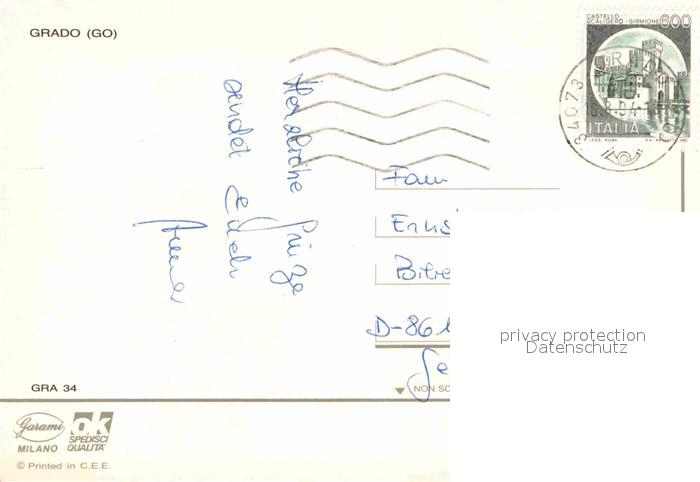 GRADO (GO)
CASTELLO
SCALIGERO - SIRMIONE
600
ITALIA
34073
Herzliche Grüße
sendet Euch
Fam
Erns
Bitre
D-861
Ge
privacy protection
Datenschutz
GRA 34
NON SC
Garami
MILANO
ok
SPEDISCI
QUALITÀ
© Printed in C.E.E.